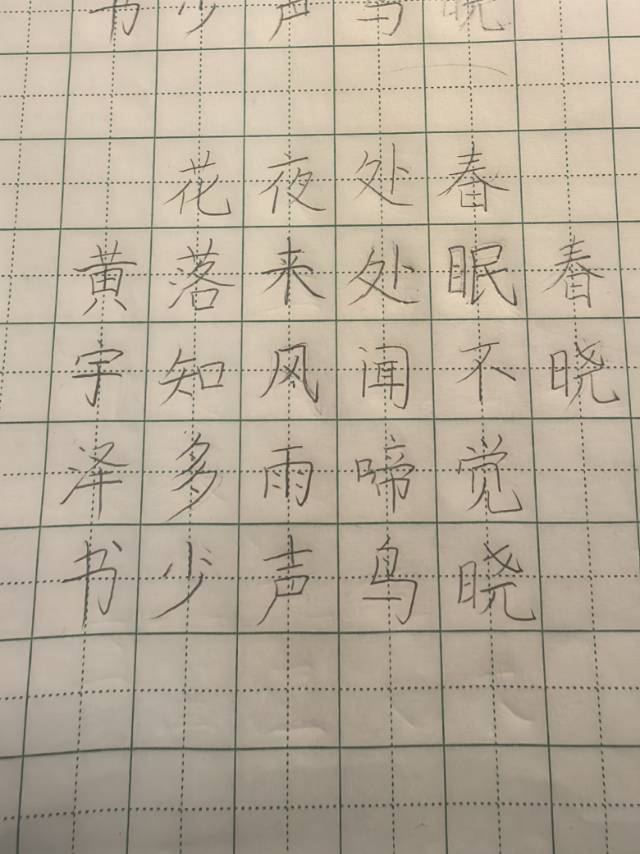 春晓
春眠不觉晓
处处闻啼鸟
夜来风雨声
花落知多少
黄宇泽书